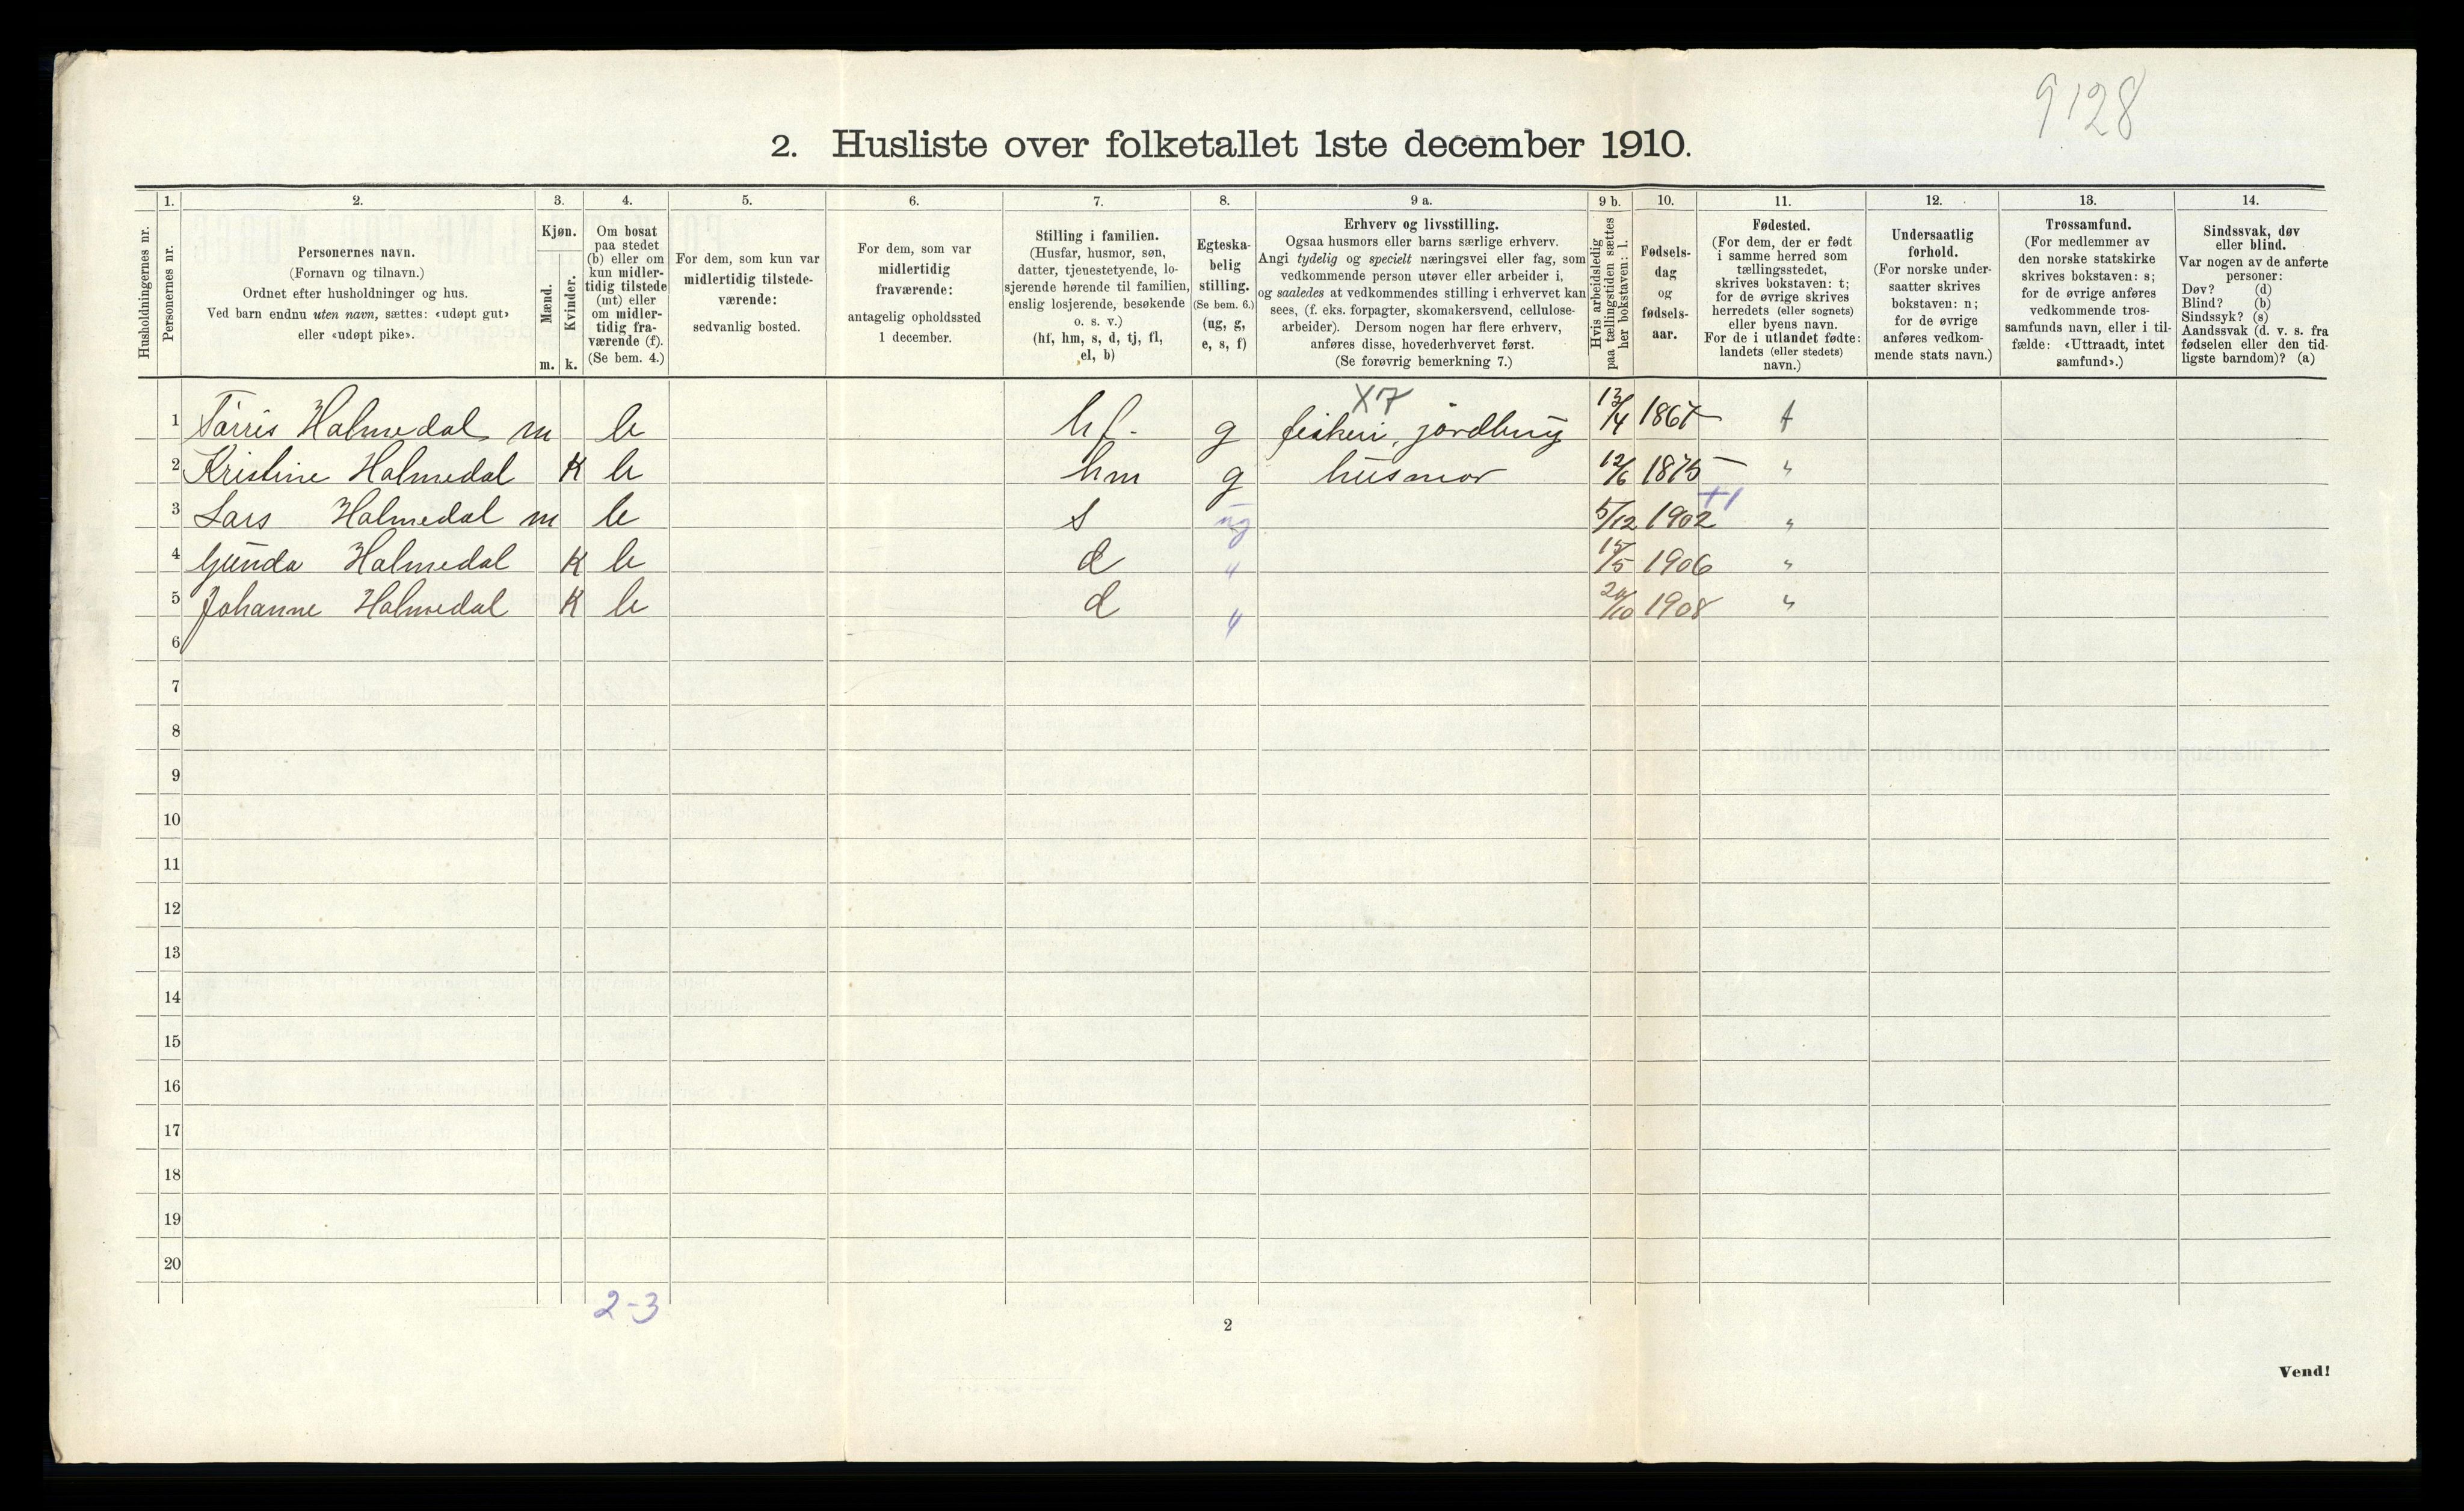 9128
2. Husliste over folketallet 1ste december 1910.
Husholdningernes nr.
1. Personernes nr.
2. Personernes navn.
(Fornavn og tilnavn.)
Ordnet efter husholdninger og hus.
Ved barn endnu uten navn, sættes: «udøpt gut»
eller «udøpt pike».
3. Kjøn.
Mænd. m.
Kvinder. k.
4. Om bosat
paa stedet
(b) eller om
kun midler-
tidig tilstede
(mt) eller
om midler-
tidig fra-
værende (f).
(Se bem. 4.)
5. For dem, som kun var
midlertidig tilstede-
værende:
sedvanlig bosted.
6. For dem, som var
midlertidig
fraværende:
antagelig opholdssted
1 december.
7. Stilling i familien.
(Husfar, husmor, søn,
datter, tjenestetyende, lo-
sjerende hørende til familien,
enslig losjerende, besøkende
o. s. v.)
(hf, hm, s, d, tj, fl,
el, b)
8. Egteska-
belig
stilling.
(Se bem. 6.)
(ug, g,
e, s, f)
9 a. Erhverv og livsstilling.
Ogsaa husmors eller barns særlige erhverv.
Angi tydelig og specielt næringsvei eller fag, som
vedkommende person utøver eller arbeider i,
og saaledes at vedkommendes stilling i erhvervet kan
sees, (f. eks. forpagter, skomakersvend, cellulose-
arbeider). Dersom nogen har flere erhverv,
anføres disse, hovederhvervet først.
(Se forøvrig bemerkning 7.)
9 b. Hvis arbeidsledig
paa tællingstiden sættes
her bokstaven: l.
10. Fødsels-
dag
og
fødsels-
aar.
11. Fødested.
(For dem, der er født
i samme herred som
tællingsstedet,
skrives bokstaven: t;
for de øvrige skrives
herredets (eller sognets)
eller byens navn.
For de i utlandet fødte:
landets (eller stedets)
navn.)
12. Undersaatlig
forhold.
(For norske under-
saatter skrives
bokstaven: n;
for de øvrige
anføres vedkom-
mende stats navn.)
13. Trossamfund.
(For medlemmer av
den norske statskirke
skrives bokstaven: s;
for de øvrige anføres
vedkommende tros-
samfunds navn, eller i til-
fælde: «Uttraadt, intet
samfund».)
14. Sindssvak, døv
eller blind.
Var nogen av de anførte
personer:
Døv? (d)
Blind? (b)
Sindssyk? (s)
Aandssvak (d. v. s. fra
fødselen eller den tid-
ligste barndom)? (a)
X7
1 Tørris Halmedal m b hf. g fiskeri, jordbrug 13/4 1867 t
2 Kristine Halmedal K b hm g husmor 12/6 1875 "
3 Lars Halmedal m b s ug 5/12 1902 +1 "
4 Gunda Halmedal K b d " 15/5 1906 "
5 Johanne Halmedal K b d " 20/10 1908 "
6
7
8
9
10
11
12
13
14
15
16
17
18
19
20
2-3
2
Vend!